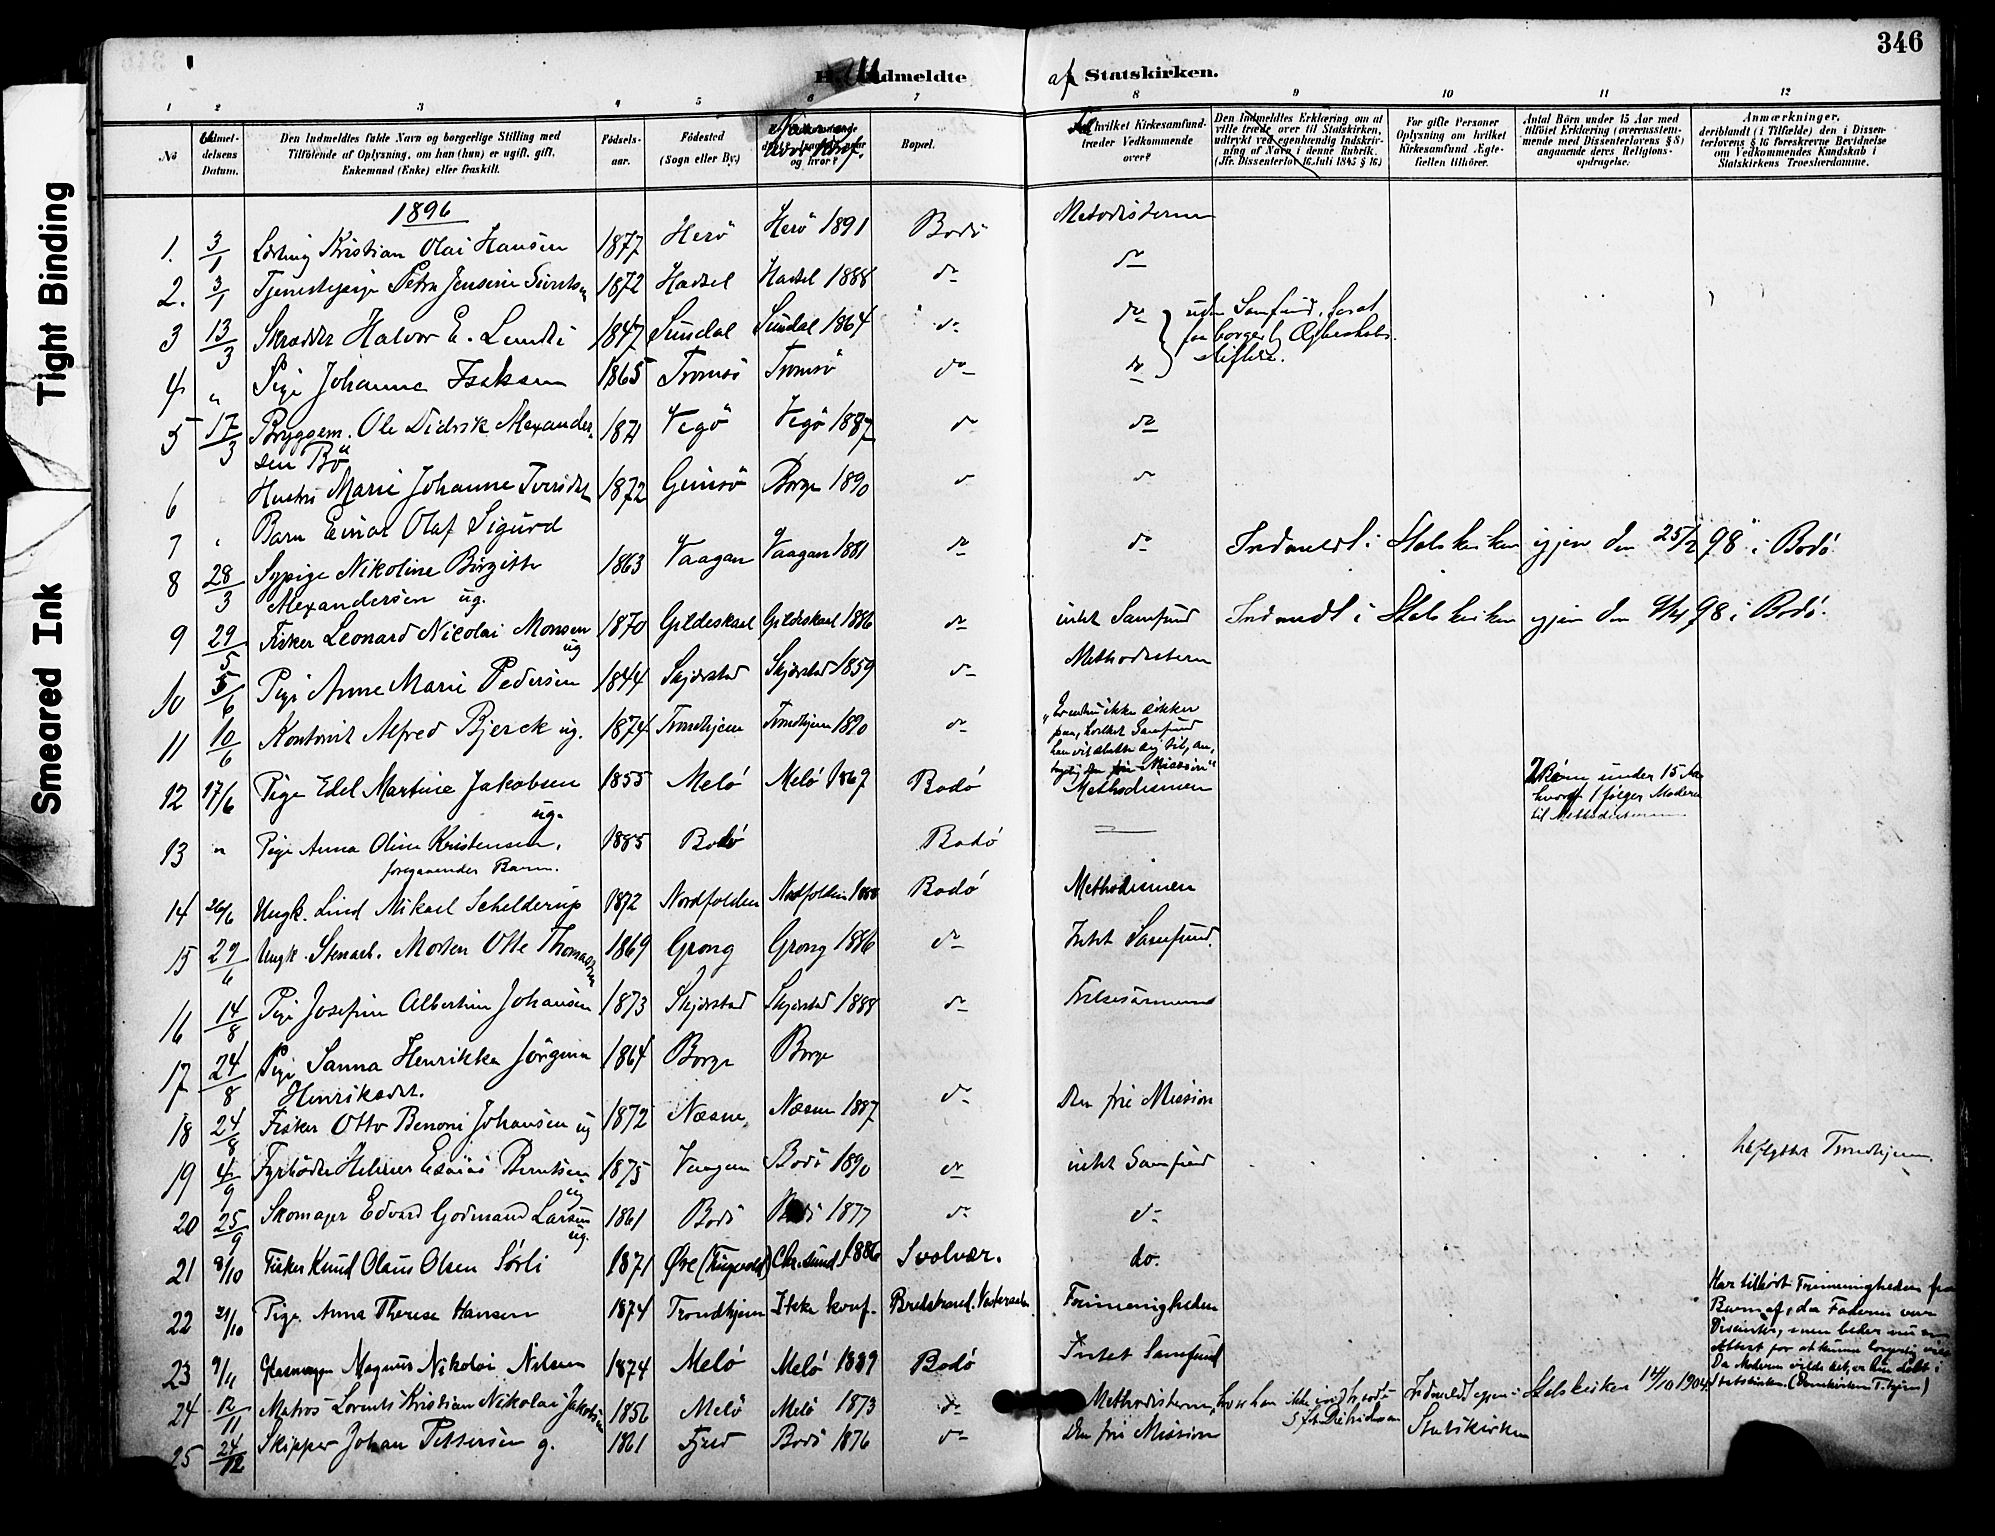 346
Udmeldte af Statskirken.
1 2 3 4 5 6 7 8 9 10 11 12
No
Udmel-
delsens
Datum.
Den Indmeldtes fulde Navn og borgerlige Stilling med
Tilføiende af Oplysning, om han (hun) er ugift, gift,
Enkemand (Enke) eller fraskilt.
Fødsels-
aar.
Fødested
(Sogn eller By.)
Bopæl.
Til hvilket Kirkesamfund
træder Vedkommende
over?
Den Indmeldtes Erklæring om at
ville træde over til Statskirken,
udtrykt ved egenhændig Indskriv-
ning af Navn i denne Rubrik.
(Jfr. Dissenterlov 16 Juli 1845 § 16)
For gifte Personer
Oplysning om hvilket
Kirkesamfund Ægte-
fællen tilhører.
Antal Børn under 15 Aar med
tilføiet Erklæring (overensstem-
mende med Dissenterlovens § 8)
angaaende deres Religions-
opdragelse.
Anmærkninger,
deriblandt (i Tilfælde) den i Dissen-
terlovens § 16 foreskrevne Bevidnelse
om Vedkommendes Kundskab i
Statskirkens Troeslærdomme.
1896
1. 3/1 Lærling Kristian Olai Hansen 1877 Herö Herö 1891 Bodö Metodisterne
2. 3/1 Tjenestepige Petra Jensine Sivertsen 1872 Hadsel Hadsel 1888 do do
3 13/3 Skrædder Halvor E. Lundli 1847 Sundal Sundal 1864 do do } uden Samfund, forat
faa borgerl. Ægteskab
stiftet.
4 " Pige Johanne Isaksen 1865 Tromsö Tromsö do do
5 17/3 Bryggem. Ole Didrik Alexander-
sen Bö 1871 Vegö Vegö 1887 do do
6 " Hustru Marie Johanne Iversdt. 1872 Gimsö Borge 1890 do do
7 " Barn Einar Olaf Sigurd
8 28/3 Sypige Nikoline Birgitte
Alexandersen ug. 1863 Vaagan Vaagan 1881 do do Indmeldt i Statskirken igjen den 25/2 98 i Bodö.
9 29/5 Fisker Leonard Nicolai Monsen
ug 1870 Gildeskaal Gildeskaal 1886 do intet Samfund Indmeldt i Statskirken igjen den 98 i Bodö.
10 5/6 Pige Anne Marie Pedersen 1844 Skjerstad Skjerstad 1859 do Methodistern
11 10/6 Kontorist Alfred Bjerck ug. 1874 Trondhjem Trondhjem 1890 do "Er endnu ikke sikker
paa, hvilket Samfund
han vil slutte sig til, an-
tagelig den frie Mission"
12 17/6 Pige Edel Martine Jakobsen
ug. 1855 Melö Melö 1869 Bodö Methodismen 2 Børn under 15 Aar
hvoraf 1 følger Moderen
til Methodisterne
13 " Pige Anna Oline Kristensen,
foregaaendes Barn. 1885 Bodö Bodö
14 26/6 Ungk. Lind Mikael Schelderup 1872 Nordfolden Nordfolden 1888 Bodö Methodismen
15 29/6 Ungk. Stenarb. Morten Otte Thomassen 1869 Grong Grong 1886 do Intet Samfund.
16 14/8 Pige Josefine Albertine Johansen 1873 Skjerstad Skjerstad 1888 do Frelsesarmeen
17 24/8 Pige Sanna Henrikka Jörgine
Henriksdt. 1864 Borge Borge
18 24/8 Fisker Otto Benoni Johansen ug 1872 Næsne Næsne 1887 do Den frie Mission
19 4/9 Fyrbøder Helmer Esaias Berntsen
ug 1875 Vaagan Bodö 1890 do intet Samfund bortflyttet Trondhjem.
20 25/9 Skomager Edvard Godmand Larsen
ug. 1861 Bodö Bodö 1877 do do
21 8/10 Fisker Knud Olaus Olsen Sørli 1871 Øre (Tingvold) Chr.sund 1886 Svolvær. do.
22 21/10 Pige Anna Therese Hansen 1874 Trondhjem Ikke konf. Bredstrand. Vesteraalen Frimenigheden Har tilhørt Frimenigheden fra
Barn af, da Faderen var
Dissenter, men beder nu om
Attest for at kunne borgerlig vies
Da Moderen vilde det, er hun døbt i
Statskirken. (Domkirken T.hjem)
23 9/11 Glasmager Magnus Nikolai Nilsen 1874 Melö Melö 1889 Bodö Intet Samfund
24 12/11 Matros Lorents Kristian Nikolai Jakobsen 1856 Melö Melö 1873 do Methodisterne, hvor han ikke indtraadte Indmeldt igjen i Statskirken 14/10 1904.
25 24/12 Skipper Johan Pettersen g. 1861 Bodö 1876 do Den frie Mission Statskirken
Tight Binding
Smeared Ink